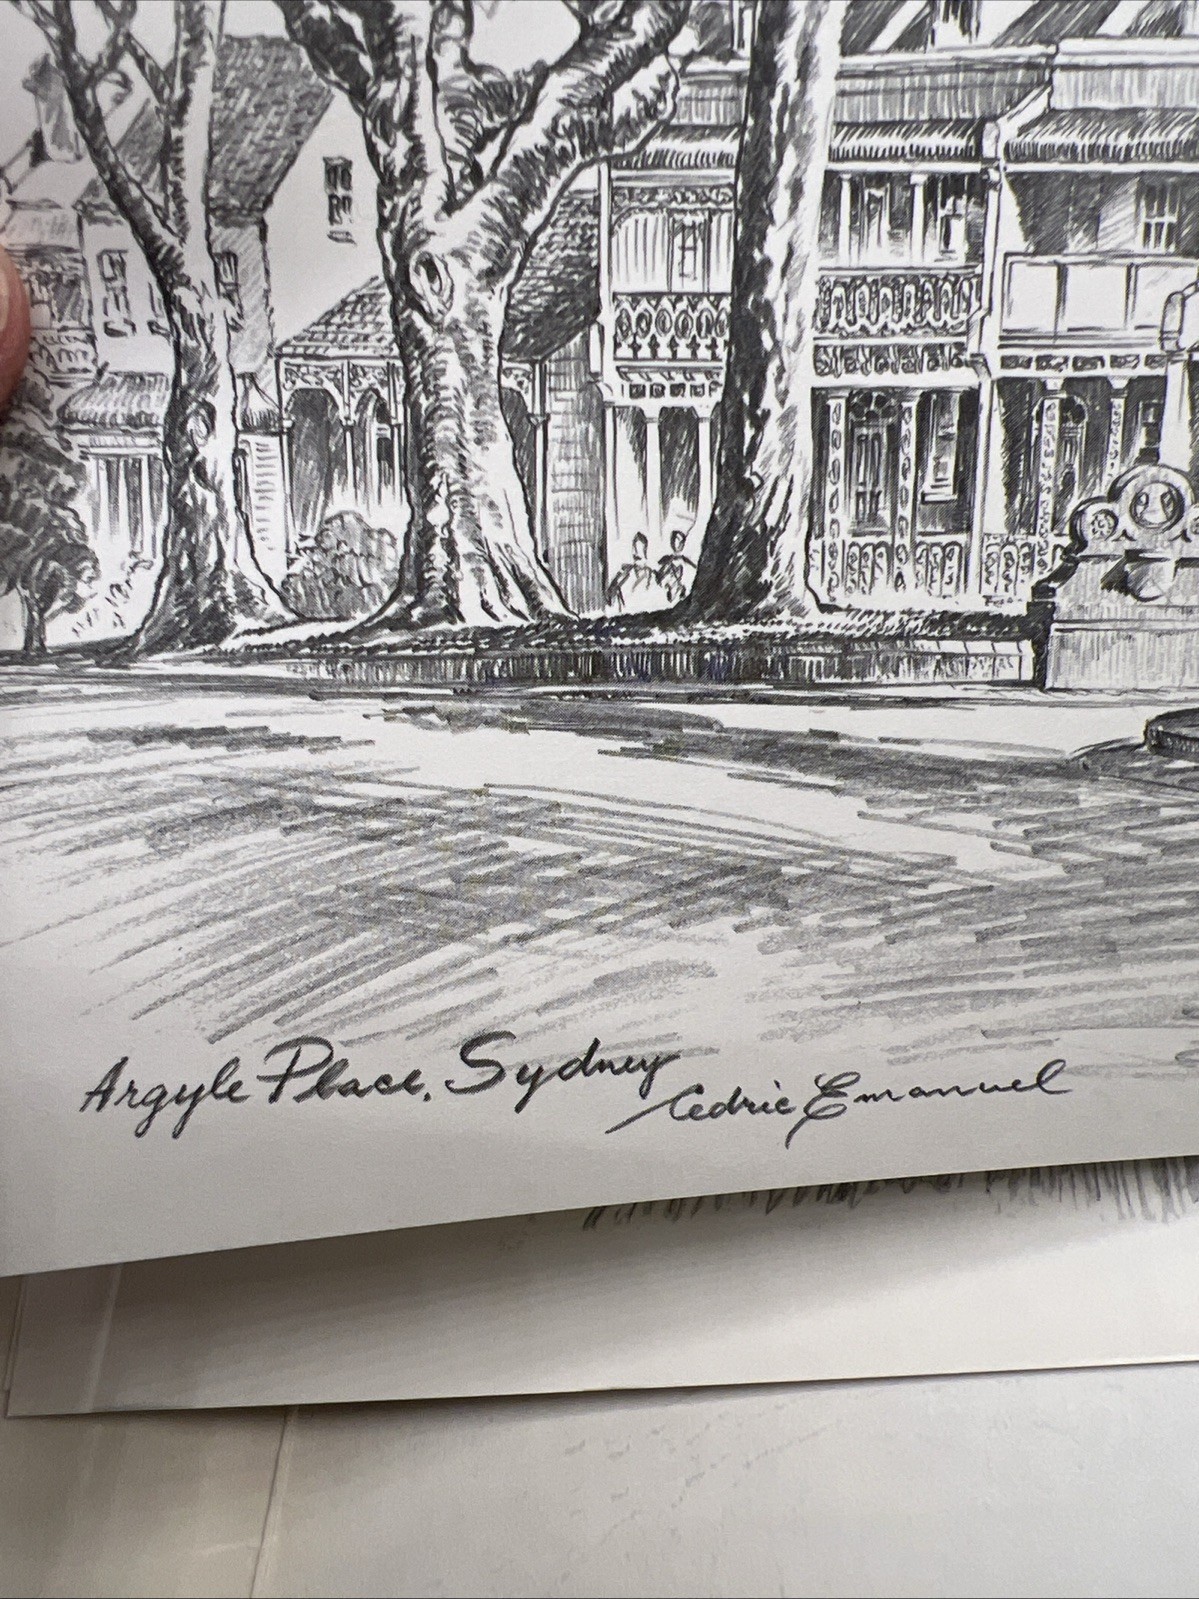 Argyle Place, Sydney
Cedric Emanuel